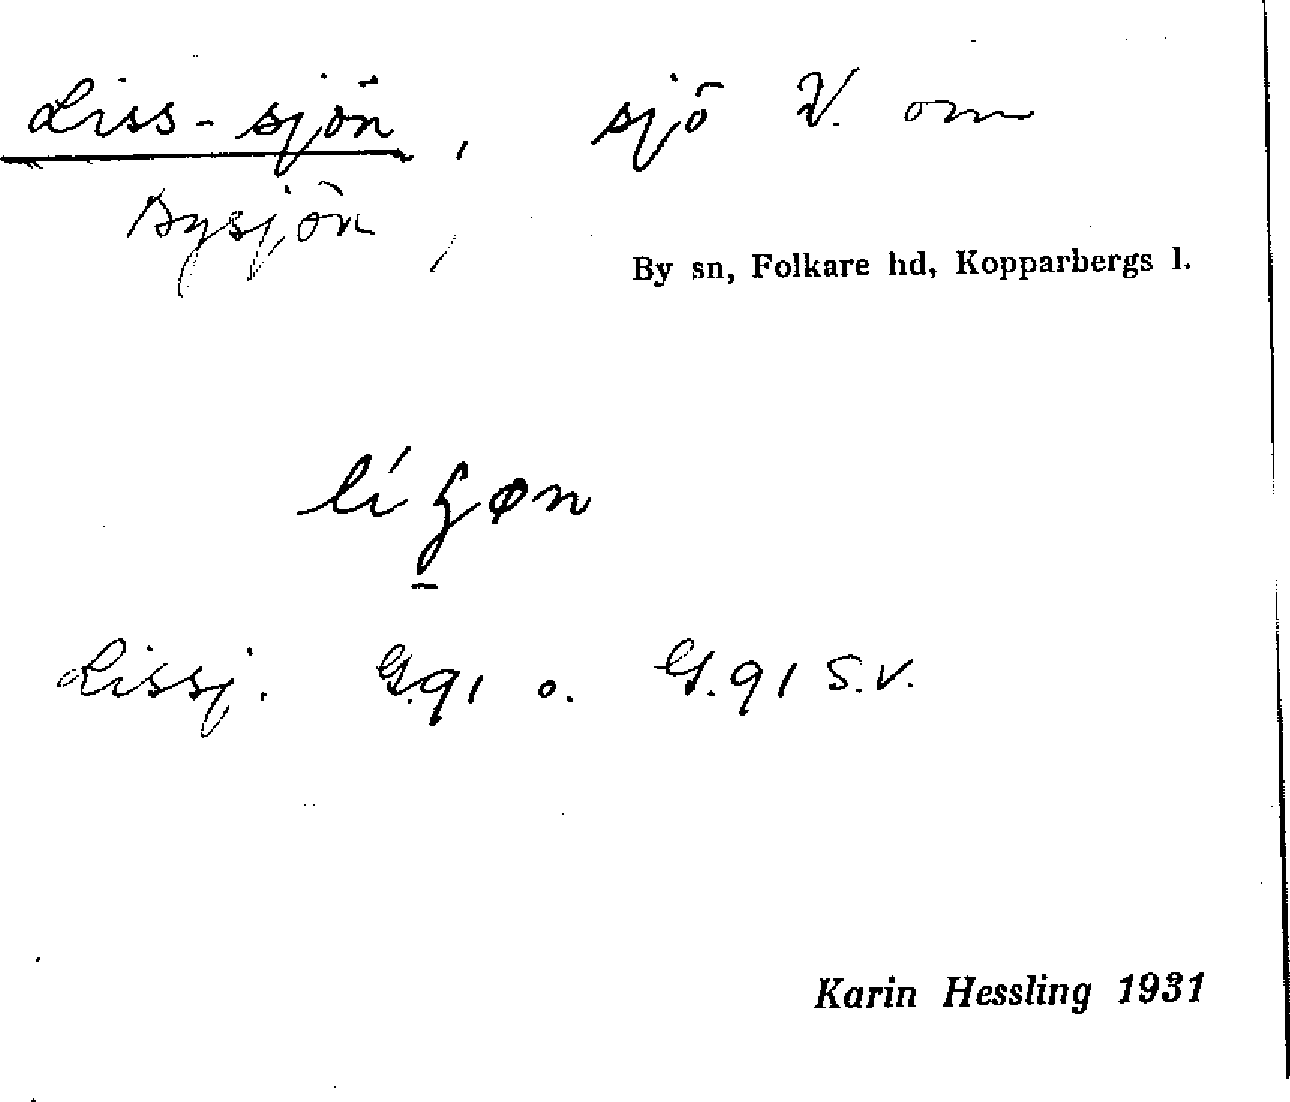 Liss-sjön, sjö V. om
Bysjön,
By sn, Folkare hd, Kopparbergs l.
Lissj. G.91 o. G.91 S.V.
Karin Hessling 1931